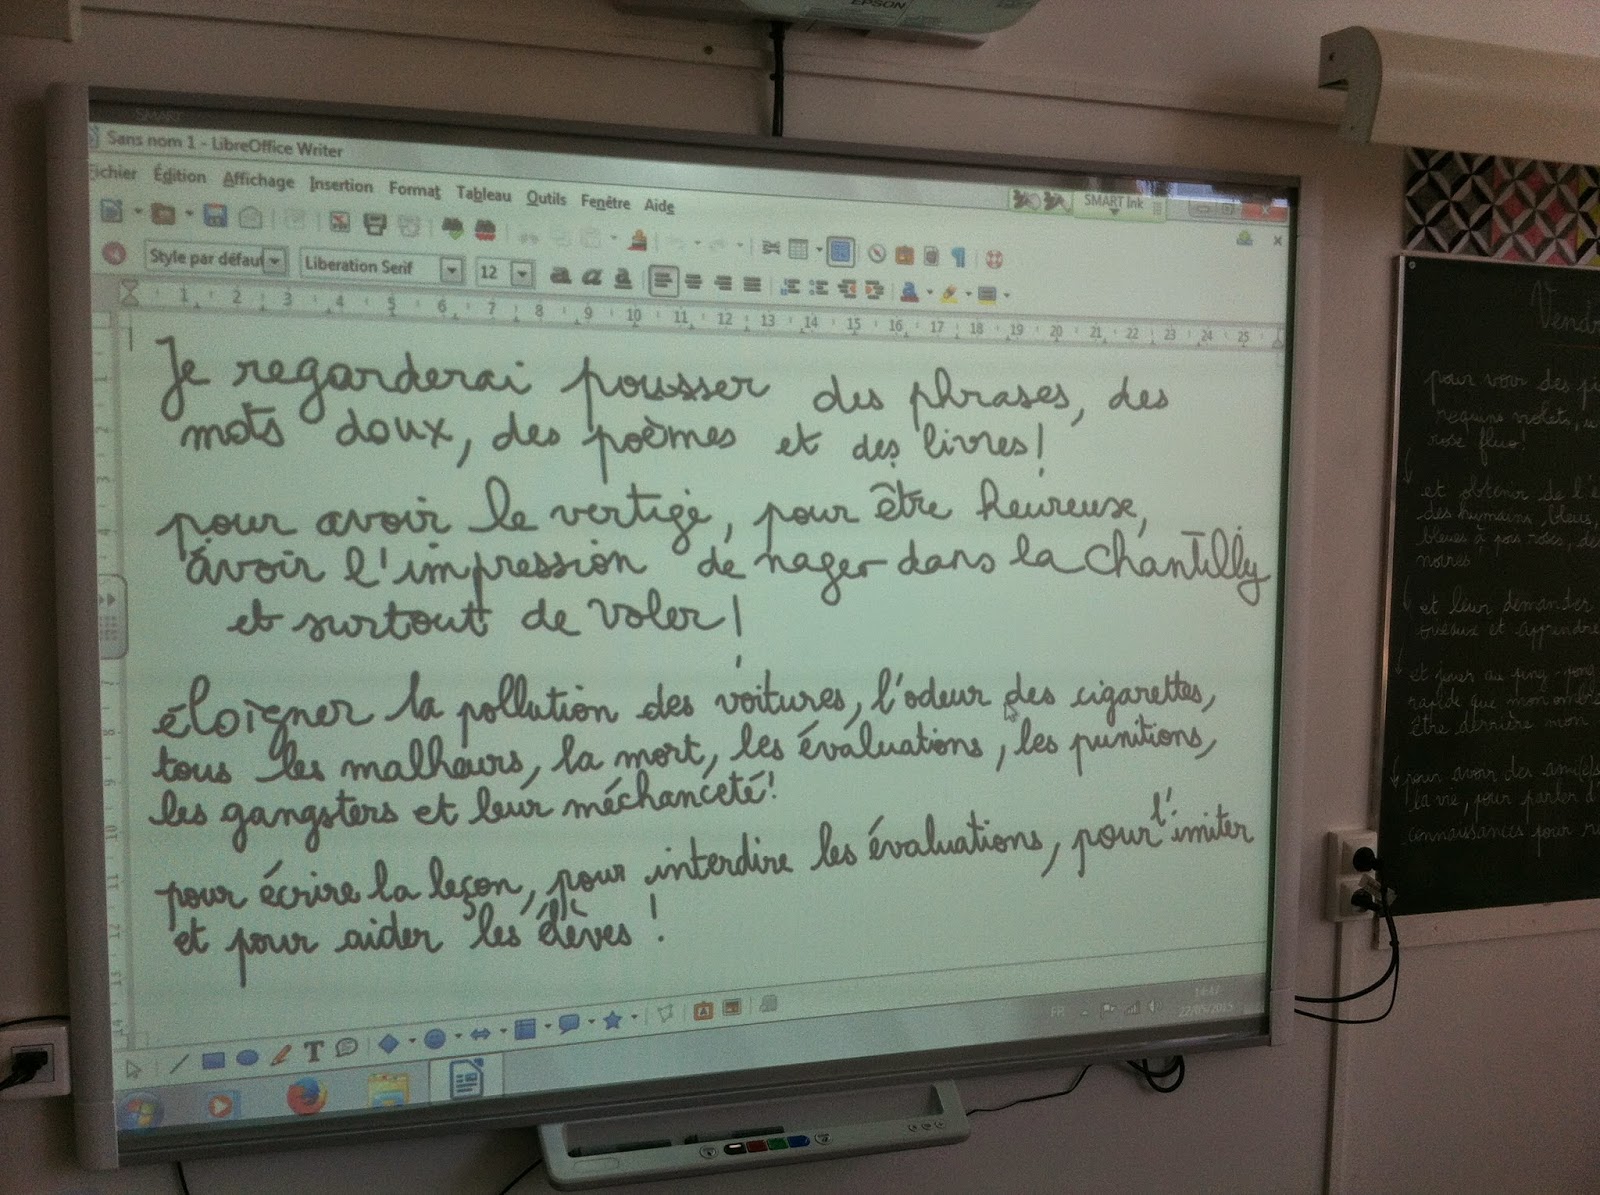 EPSON
SMART
Sans nom 1 - LibreOffice Writer
ichier Édition Affichage Insertion Format Tableau Outils Fenêtre Aide
SMART Ink
Style par défaut Liberation Serif 12
1 2 3 4 5 6 7 8 9 10 11 12 13 14 15 16 17 18 19 20 21 22 23 24 25
Je regarderai pousser des phrases, des
mots doux, des poèmes et des livres!
pour avoir le vertige, pour être heureuse,
avoir l'impression de nager dans la chantilly
et surtout de voler!
éloigner la pollution des voitures, l'odeur des cigarettes,
tous les malheurs, la mort, les évaluations, les punitions,
les gangsters et leur méchanceté!
pour écrire la leçon, pour interdire les évaluations, pour l'imiter
et pour aider les élèves!
FR
22/05/2015
Vendr
pour voir des
requins violets,
rose fluo!
et obtenir de l'
des humains bleus,
bleues à pois roses,
noires
et leur demander
oiseaux et apprendre
et jouer au ping-pong
rapide que mon ombre
être derrière mon
pour avoir des
la vie, pour parler
connaissances pour